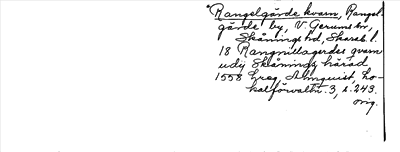 Rangelgårde kvarn, Rangel-
gårde by, V. Gerums sn,
Skånings hd, Skarab. l.
18 Rangnillagerdes qvarn
udij Skånings härad
1558 Greg. Almquist, Lo-
kalförvaltn. 3, s. 243.
orig.